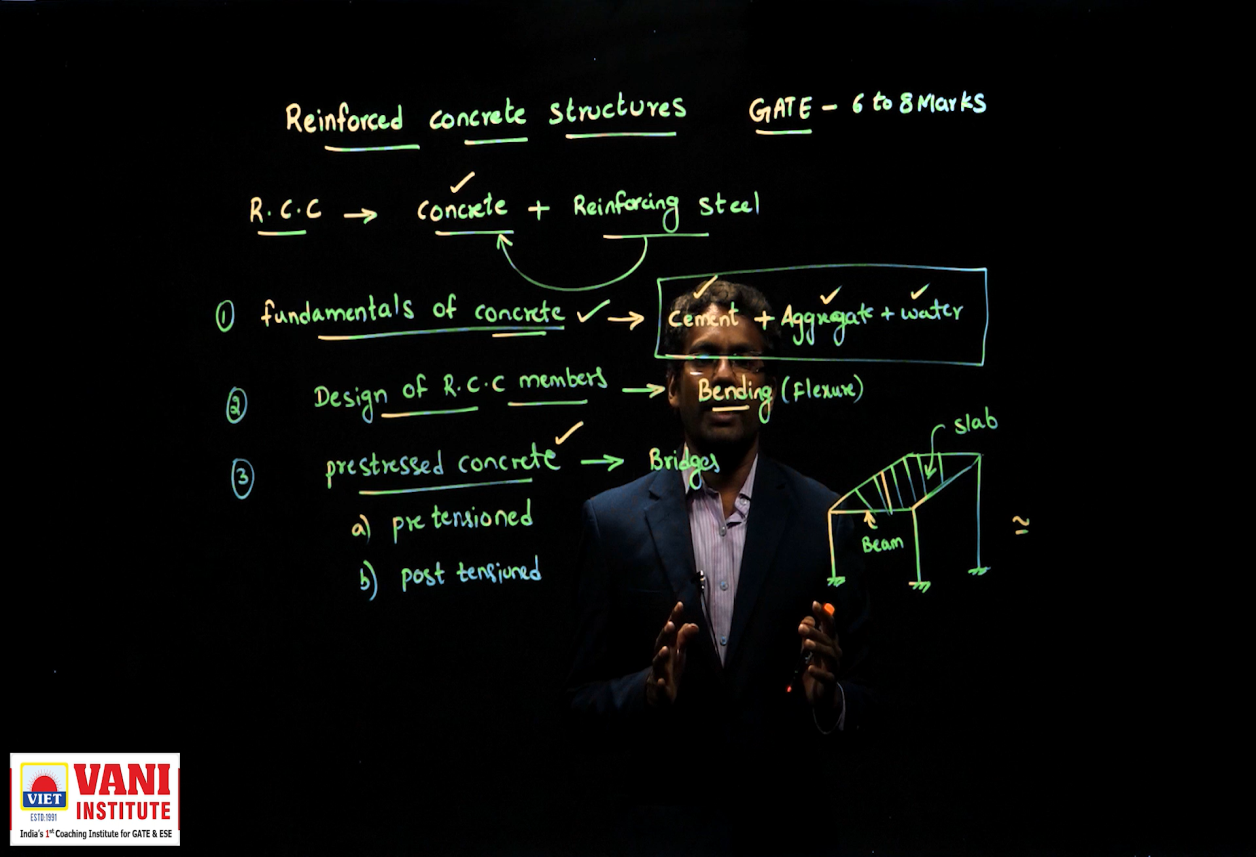 Reinforced concrete structures GATE - 6 to 8 Marks
R.C.C → concrete + Reinforcing steel
① fundamentals of concrete ✓ → Cement + Aggregate + water
② Design of R.C.C members → Bending (flexure)
slab
③ prestressed concrete → Bridges
a) pre tensioned
Beam
≃
b) post tensioned
VANI
VIET
INSTITUTE
ESTD.1991
India's 1st Coaching Institute for GATE & ESE